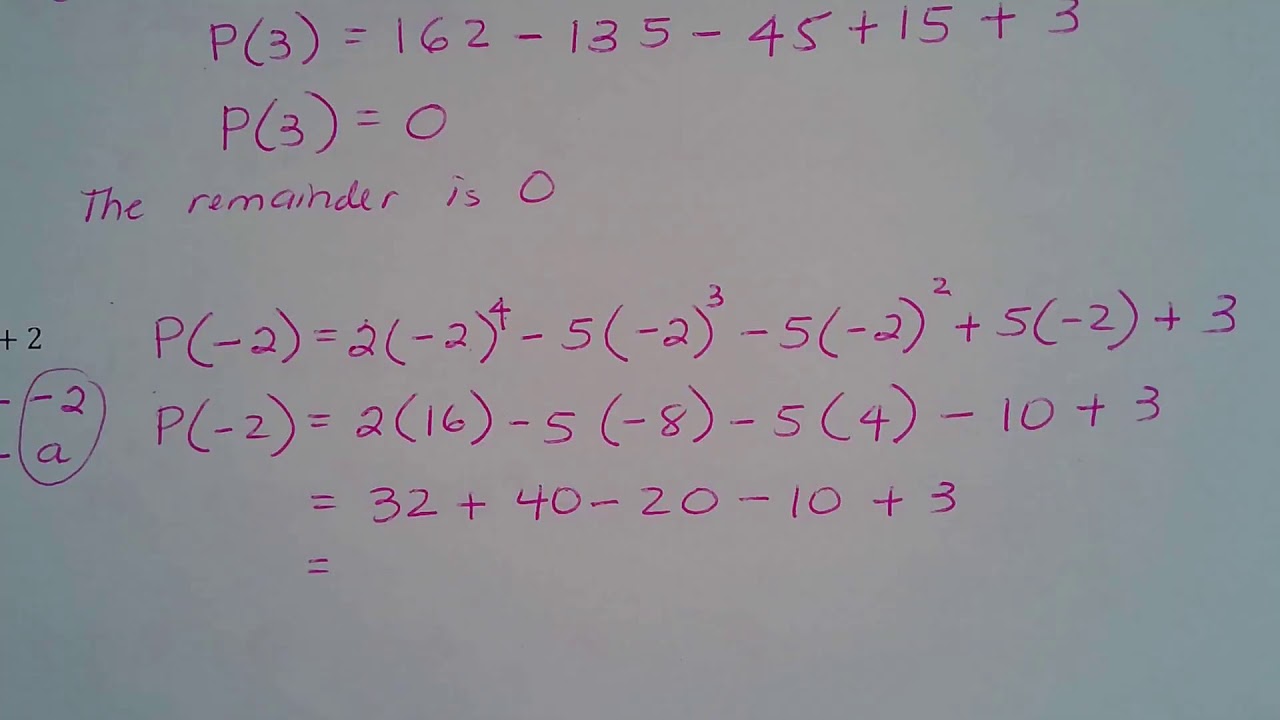 P(3) = 162 - 135 - 45 + 15 + 3
P(3) = 0
The remainder is 0
+ 2
P(-2) = 2(-2)⁴ - 5(-2)³ - 5(-2)² + 5(-2) + 3
- -2
P(-2) = 2(16) - 5(-8) - 5(4) - 10 + 3
- a
= 32 + 40 - 20 - 10 + 3
=